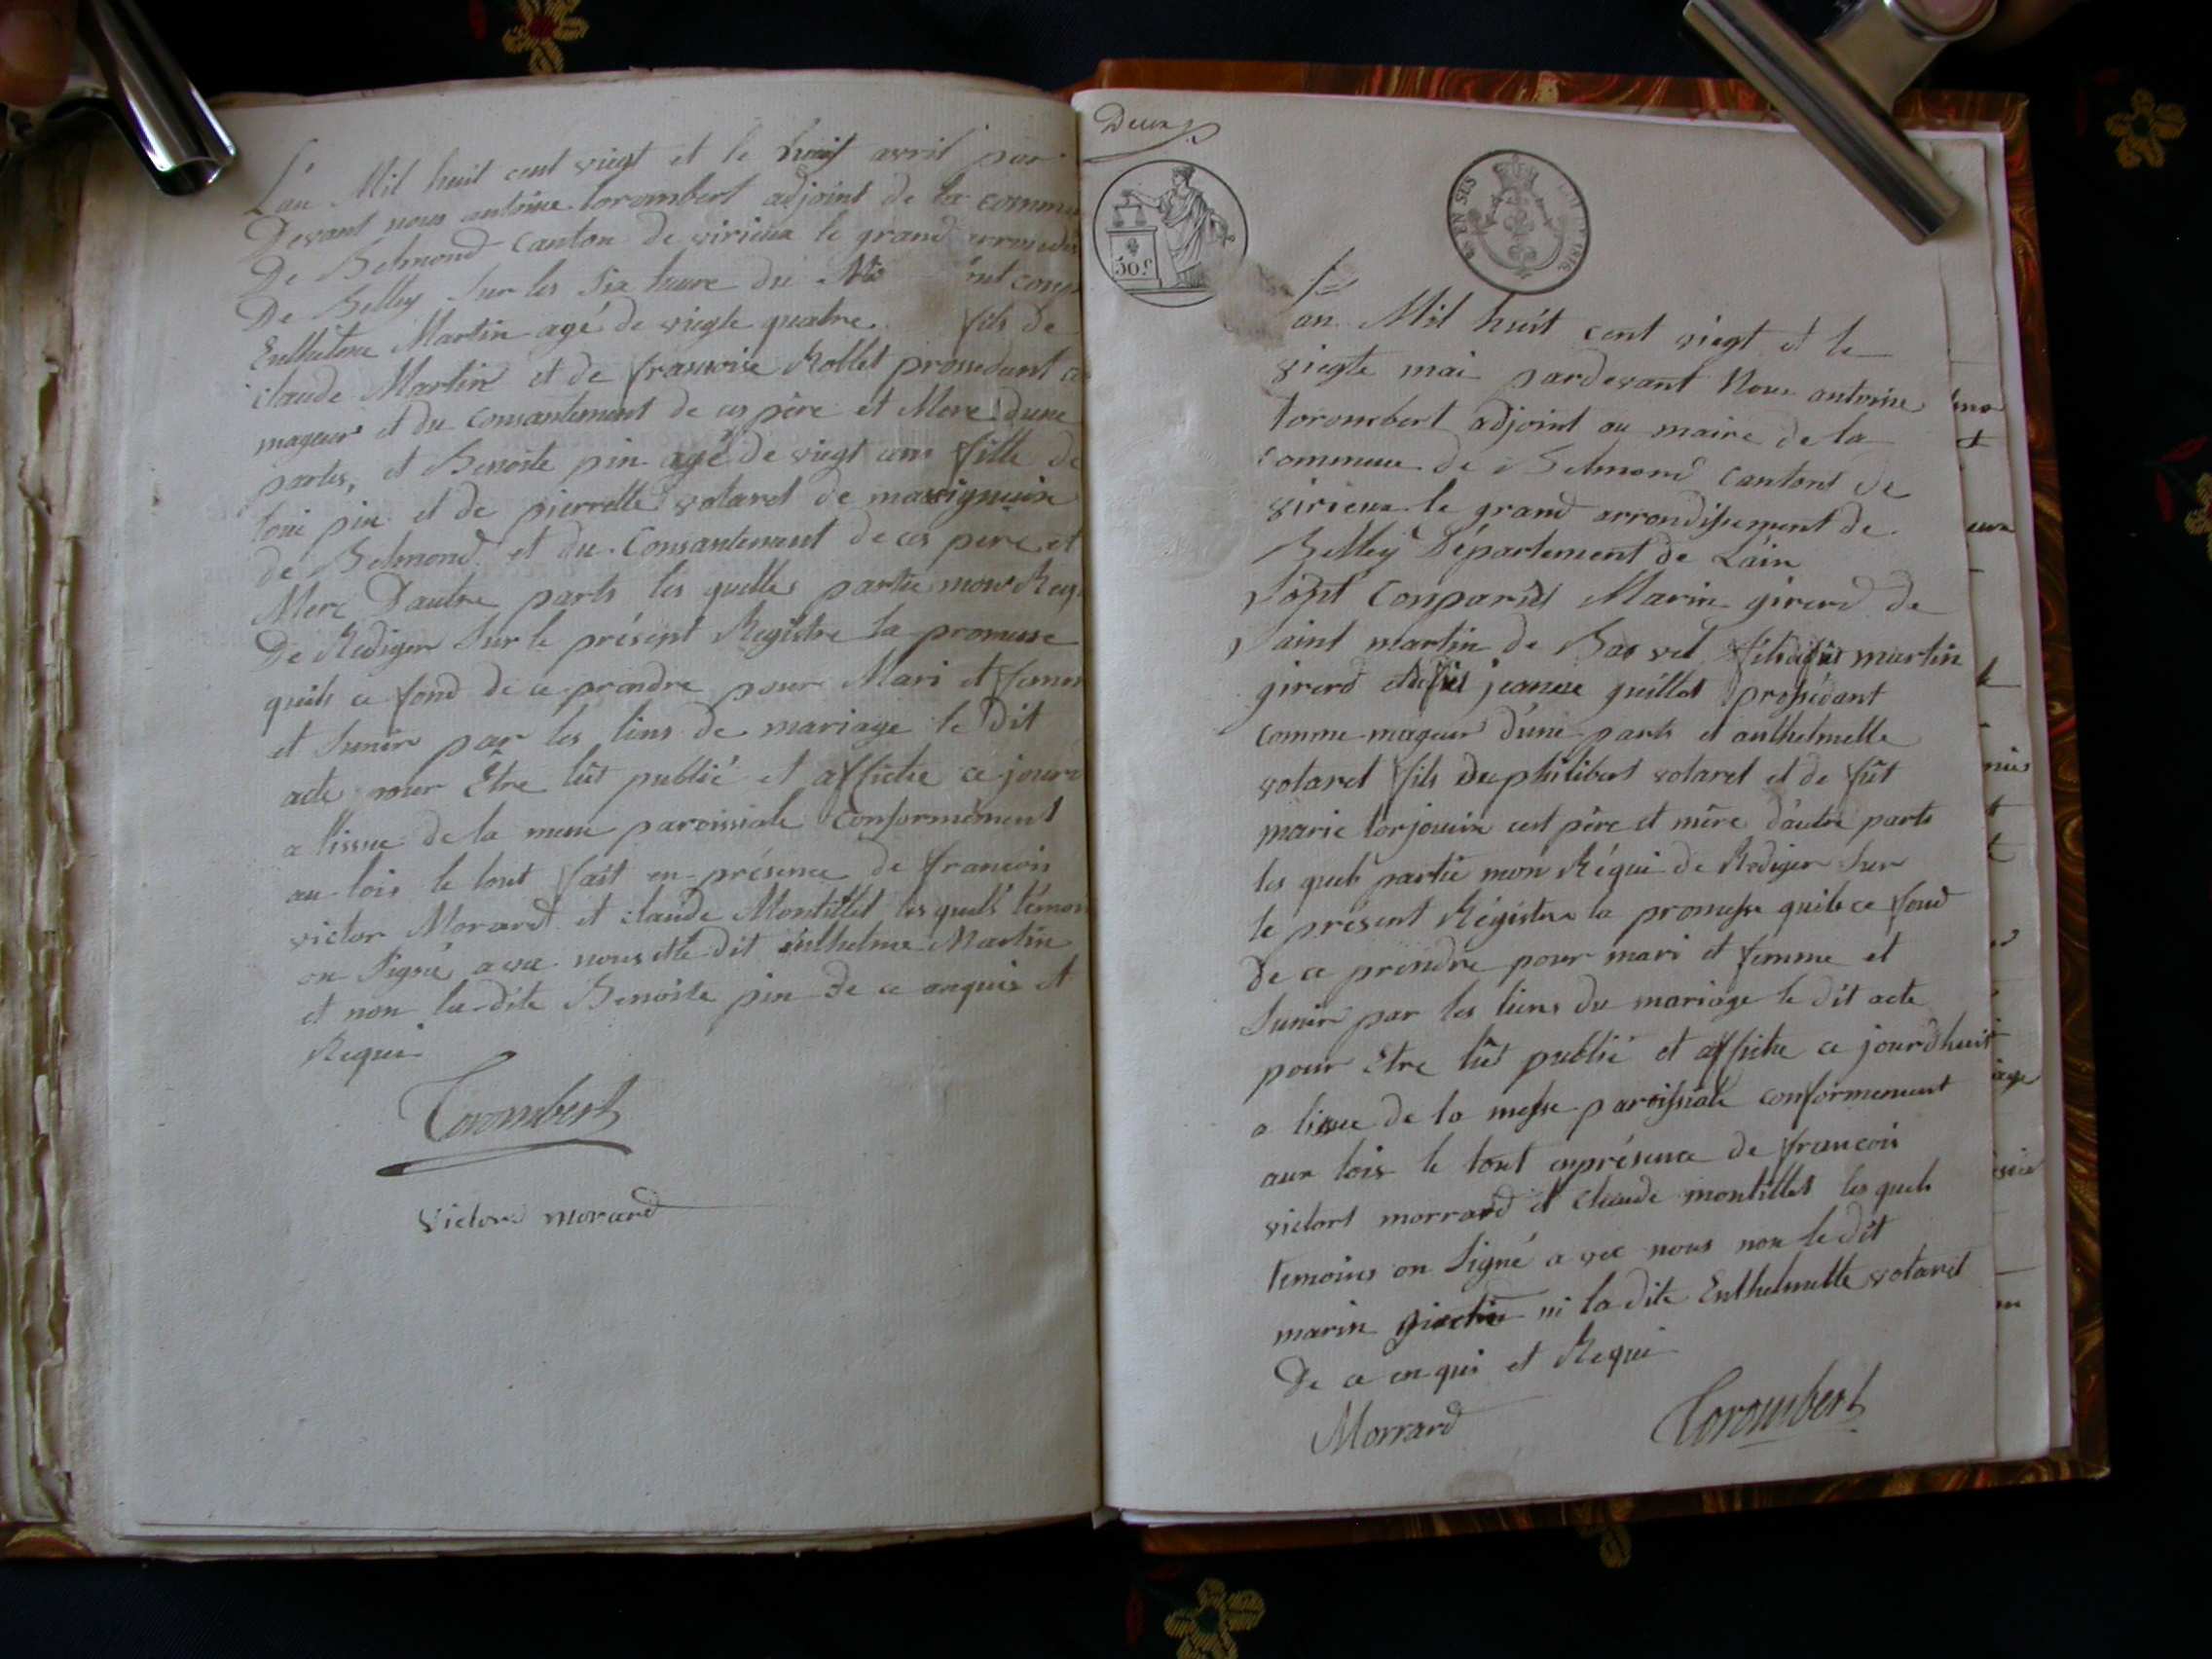 L'an Mil huit cent viegt et le huit avril par
Devant nous antoine torombert adjoint de la commu
De Belmond Canton de virieux le grand arrondis
De Belley Sur les Six heure du
Enthelme Martin agé de viegte quatre fils de
claude Martin et de fransoise Rollet prossedant
mageur et du consantement de ces père et Mere dune
parts, et Benoite pin agé de viegt ans fille de
loui pin et de pierrette votaret de massignieu
de Belmond et du Consantement de ces pere et
Mere D'autre parts les quelles partie mon
De Rediger Sur le présent Registre la promesse
quils ce fond de ce prandre pour Mari et femm
et Sunir par les liens de mariage le dit
acte pour Être lût publié et affiche ce jour
a lissue de la messe paroissiale Conformément
au lois le tout fait en présence de francois
victor Morard et claude Montillet les quels témoi
on Signé avec nous dit enthelme Martin
et non la dite Benoite pin de ce anquis et
Requi
Torombert
Victor morard
Deux
30 c
EN SUS
an Mil huit cent viegt et le
viegte mai pardevant Nous antoine
torombert adjoint au maire de la
commune de Belmond Cantont de
virieux le grand arrondissement de
Belley Département de L'ain
Sont Comparus Marin girerd de
Saint martin de Bavel fils de fût martin
girerd et de fût jeanne guillot prossédant
comme mageur d'une parts et anthelmette
votaret fils de philibert votaret et de fût
marie torjouin cest père et mère d'autre parts
les quels partie mon Réqui de Rediger Sur
le présent Régistre la promesse quils ce fond
de ce prendre pour mari et femme et
Sunir par les liens du mariage le dit acte
pour Etre lût publié et affiche ce jourdhuit
a lissue de la messe paroissiale conformement
aux lois le tout en présence de francois
victort morrard et claude montillet les quels
temoins on Signé avec nous non le dit
marin ni la dite Enthelmette votaret
De ce enqui et Requi
Morrard
Torombert